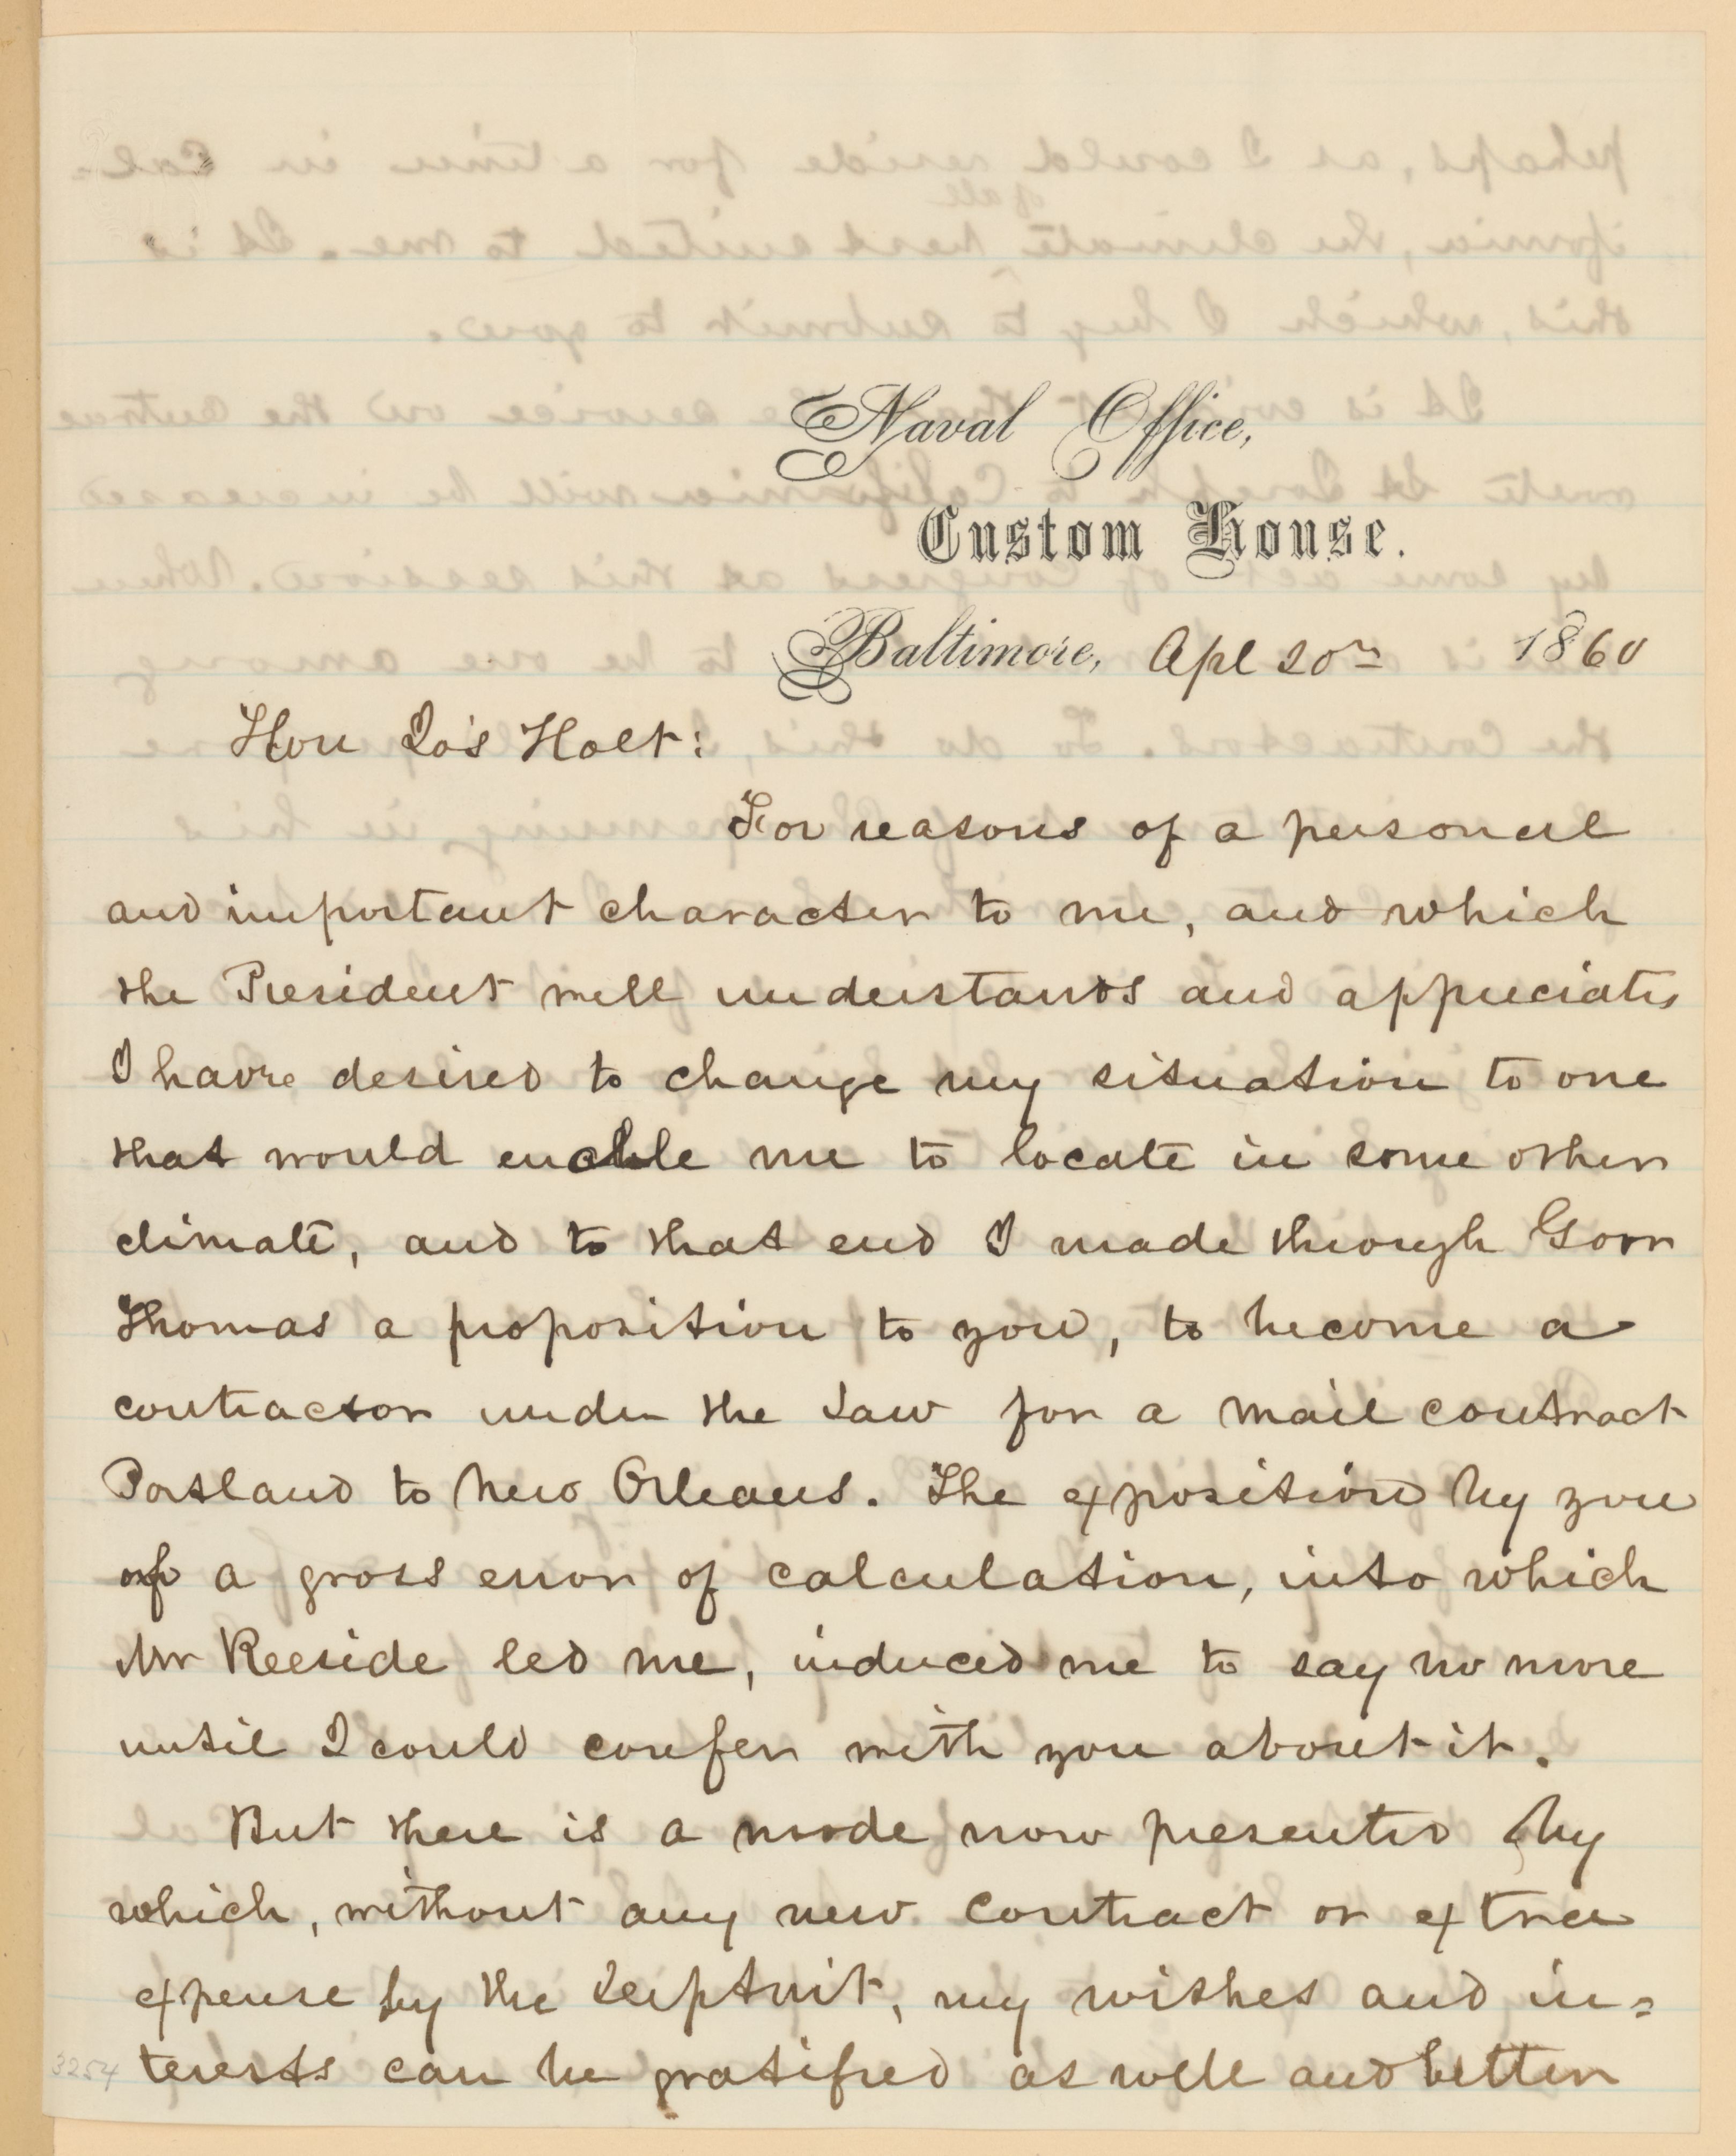 Naval Office,
Custom House.
Baltimore, Apl 20th 1860
Hon Jos Holt:
For reasons of a personal
and important character to me, and which
the President well understands and appreciates
I have desired to change my situation to one
that would enable me to locate in some other
climate, and to that end I made through Govr
Thomas a proposition to you, to become a
contractor under the law for a mail contract
Portland to New Orleans. The exposition by you
of a gross error of calculation, into which
Mr Reeside led me, induced me to say no more
until I could confer with you about it.
But there is a mode now presented by
which, without any new contract or extra
expense by the Deptmt, my wishes and in=
terests can be gratified as well and better
3254